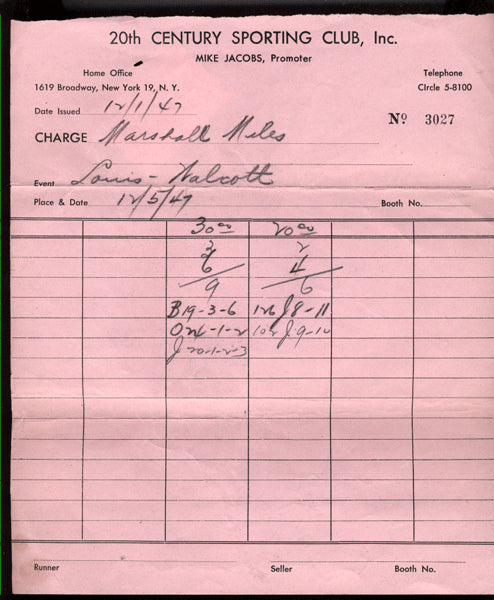 20th CENTURY SPORTING CLUB, Inc.
MIKE JACOBS, Promoter
Home Office
1619 Broadway, New York 19, N. Y.
Telephone
CIrcle 5-8100
Date Issued 12/1/47
Nº 3027
CHARGE Marshall Miles
Event Louis - Walcott
Place & Date 12/5/47
Booth No.
30 00 20 00
3 2
6 4
9 6
B19-3-6 126 J8-11
O24-1-2 102 J-9-10
J 20-1-2-3
Runner Seller Booth No.